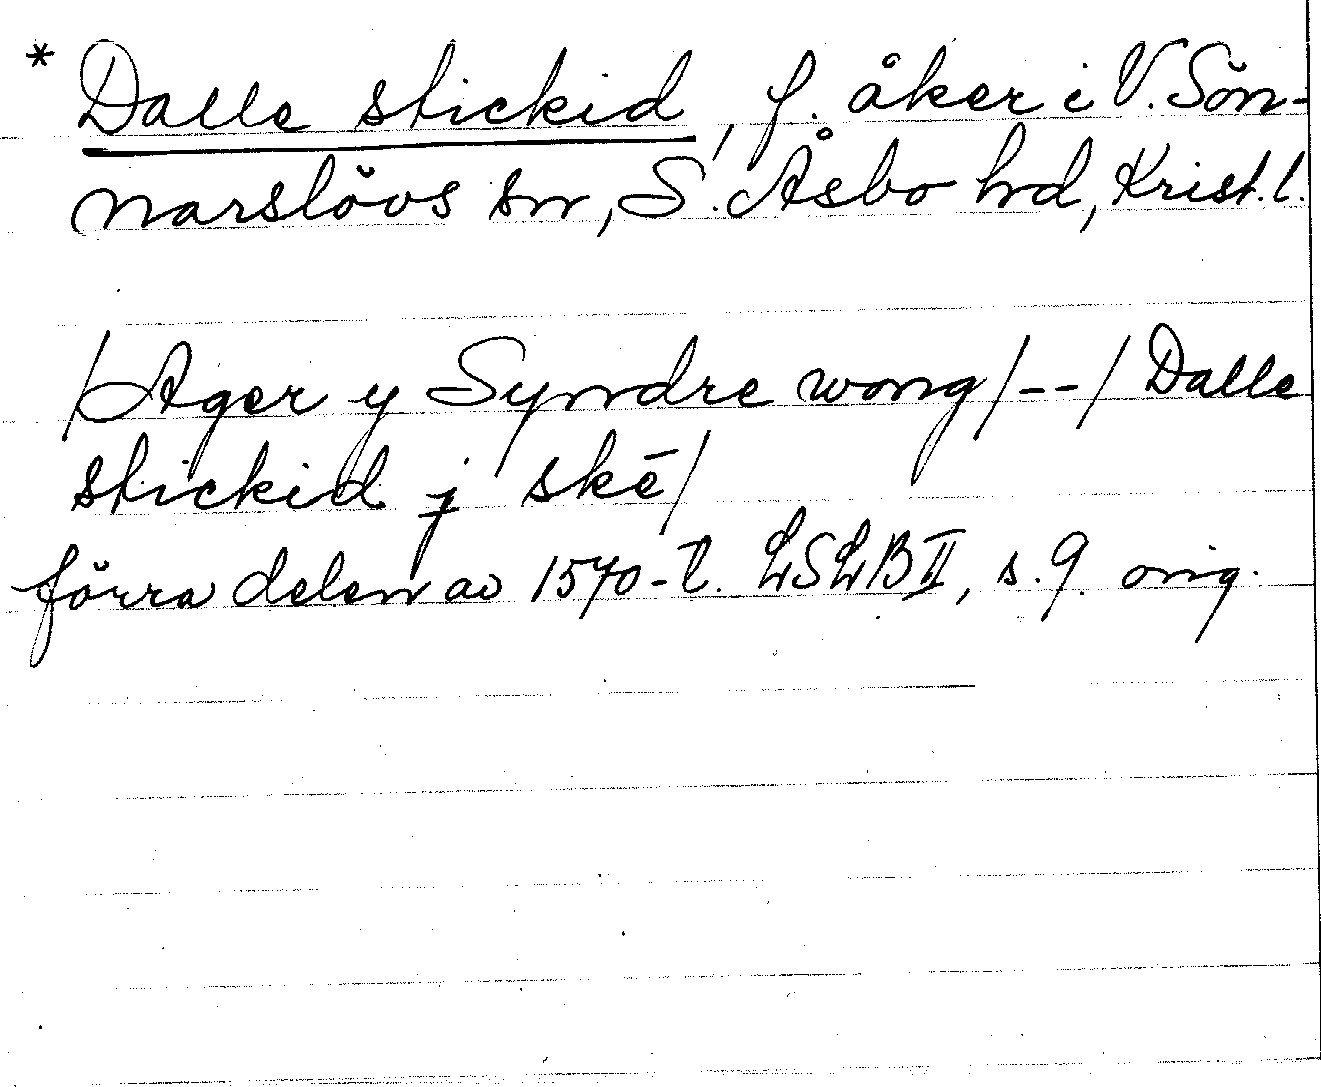 * Dalle stickid, f. åker i V. Sön-
narslövs sn, S. Åsbo hd, Krist. l.
/Ager y Syndre wong/--/ Dalle
stickid j skē/
förra delen av 1570-t. LSLB II, s. 9. orig.